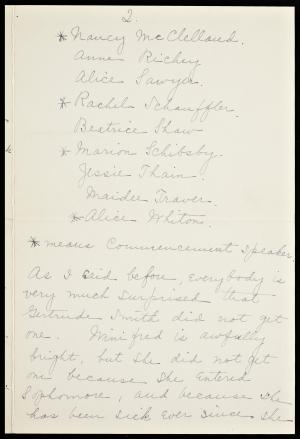 2.
* Nancy McClelland.
Anne Richey
Alice Sawyer.
* Rachel Schauffler.
Beatrice Shaw
* Marion Schibsby.
Jessie Thain.
Maidee Traver.
* Alice Whiton.
* means Commencement speaker.
As I said before, everybody is
very much surprised that
Gertrude Smith did not get
one. Winifred is awfully
bright, but she did not get
one because she entered
Sophomore, and because she
has been sick ever since she